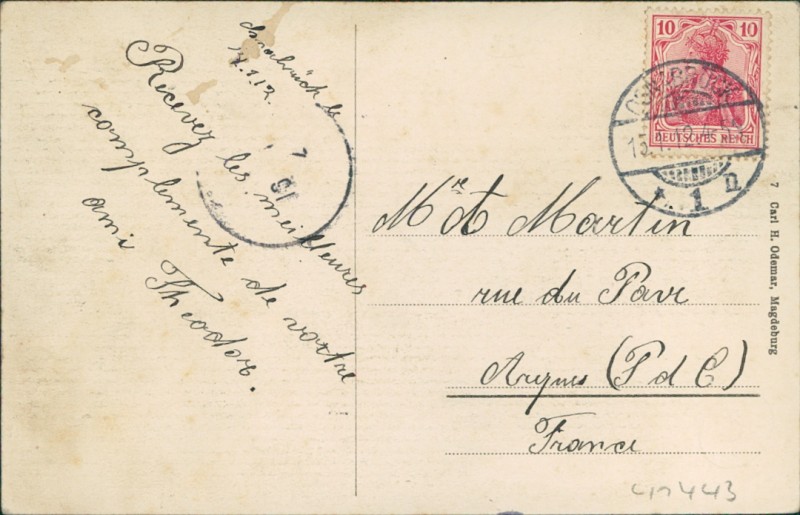 Osnabrück le
Recevez les meilleures
complemente de vootre
ami Theodor.
10 10
DEUTSCHES REICH
OSNABRÜCK
1 n
Mr A Martin
rue du Pavé
Arques (P d C)
France
7 Carl H. Odemar, Magdeburg